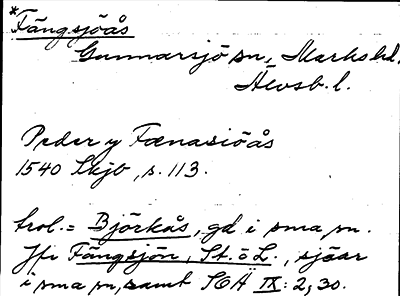 *Fängsjöås
Gunnarsjö sn, Marks hd.
Älvsb. l.
Peder y Fænasiöås
1540 Skjb, s. 113.
trol. = Björkås, gd i sma sn.
Jfr Fängsjön, St. o L., sjöar
i sma sn, samt SOÄ IX: 2, 30.